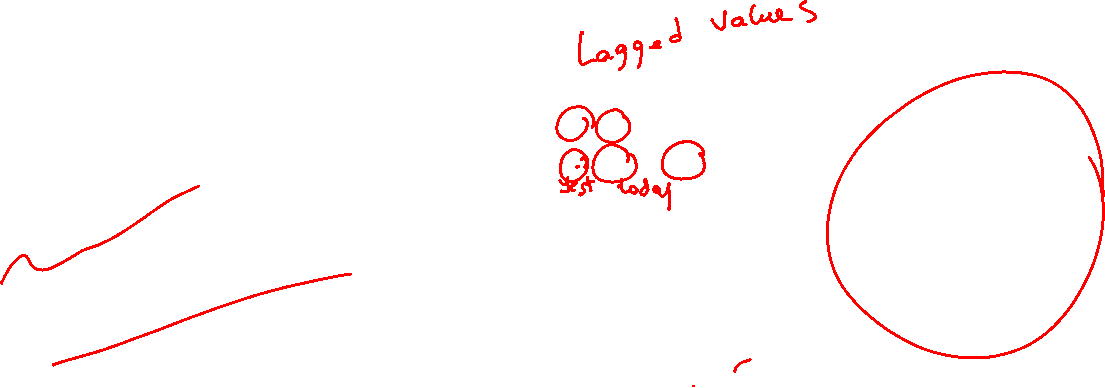 Lagged values
yest today